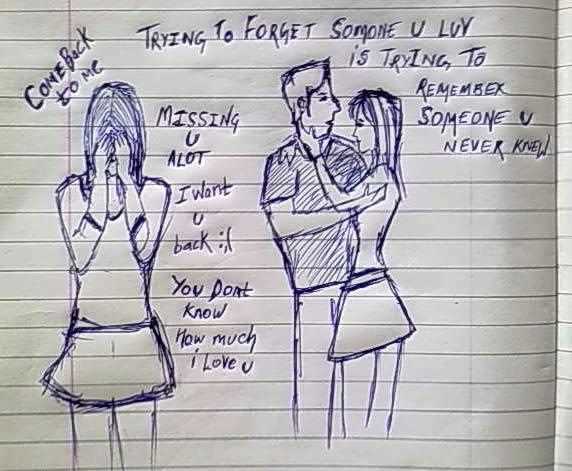 TRYING TO FORGET SOMONE U LUV
IS TRYING TO
REMEMBER
SOMEONE U
NEVER KNEW
COME BACK
to me
MISSING
U
ALOT
I Want
U
back :(
YOU DONt
KNOW
How much
i Love u